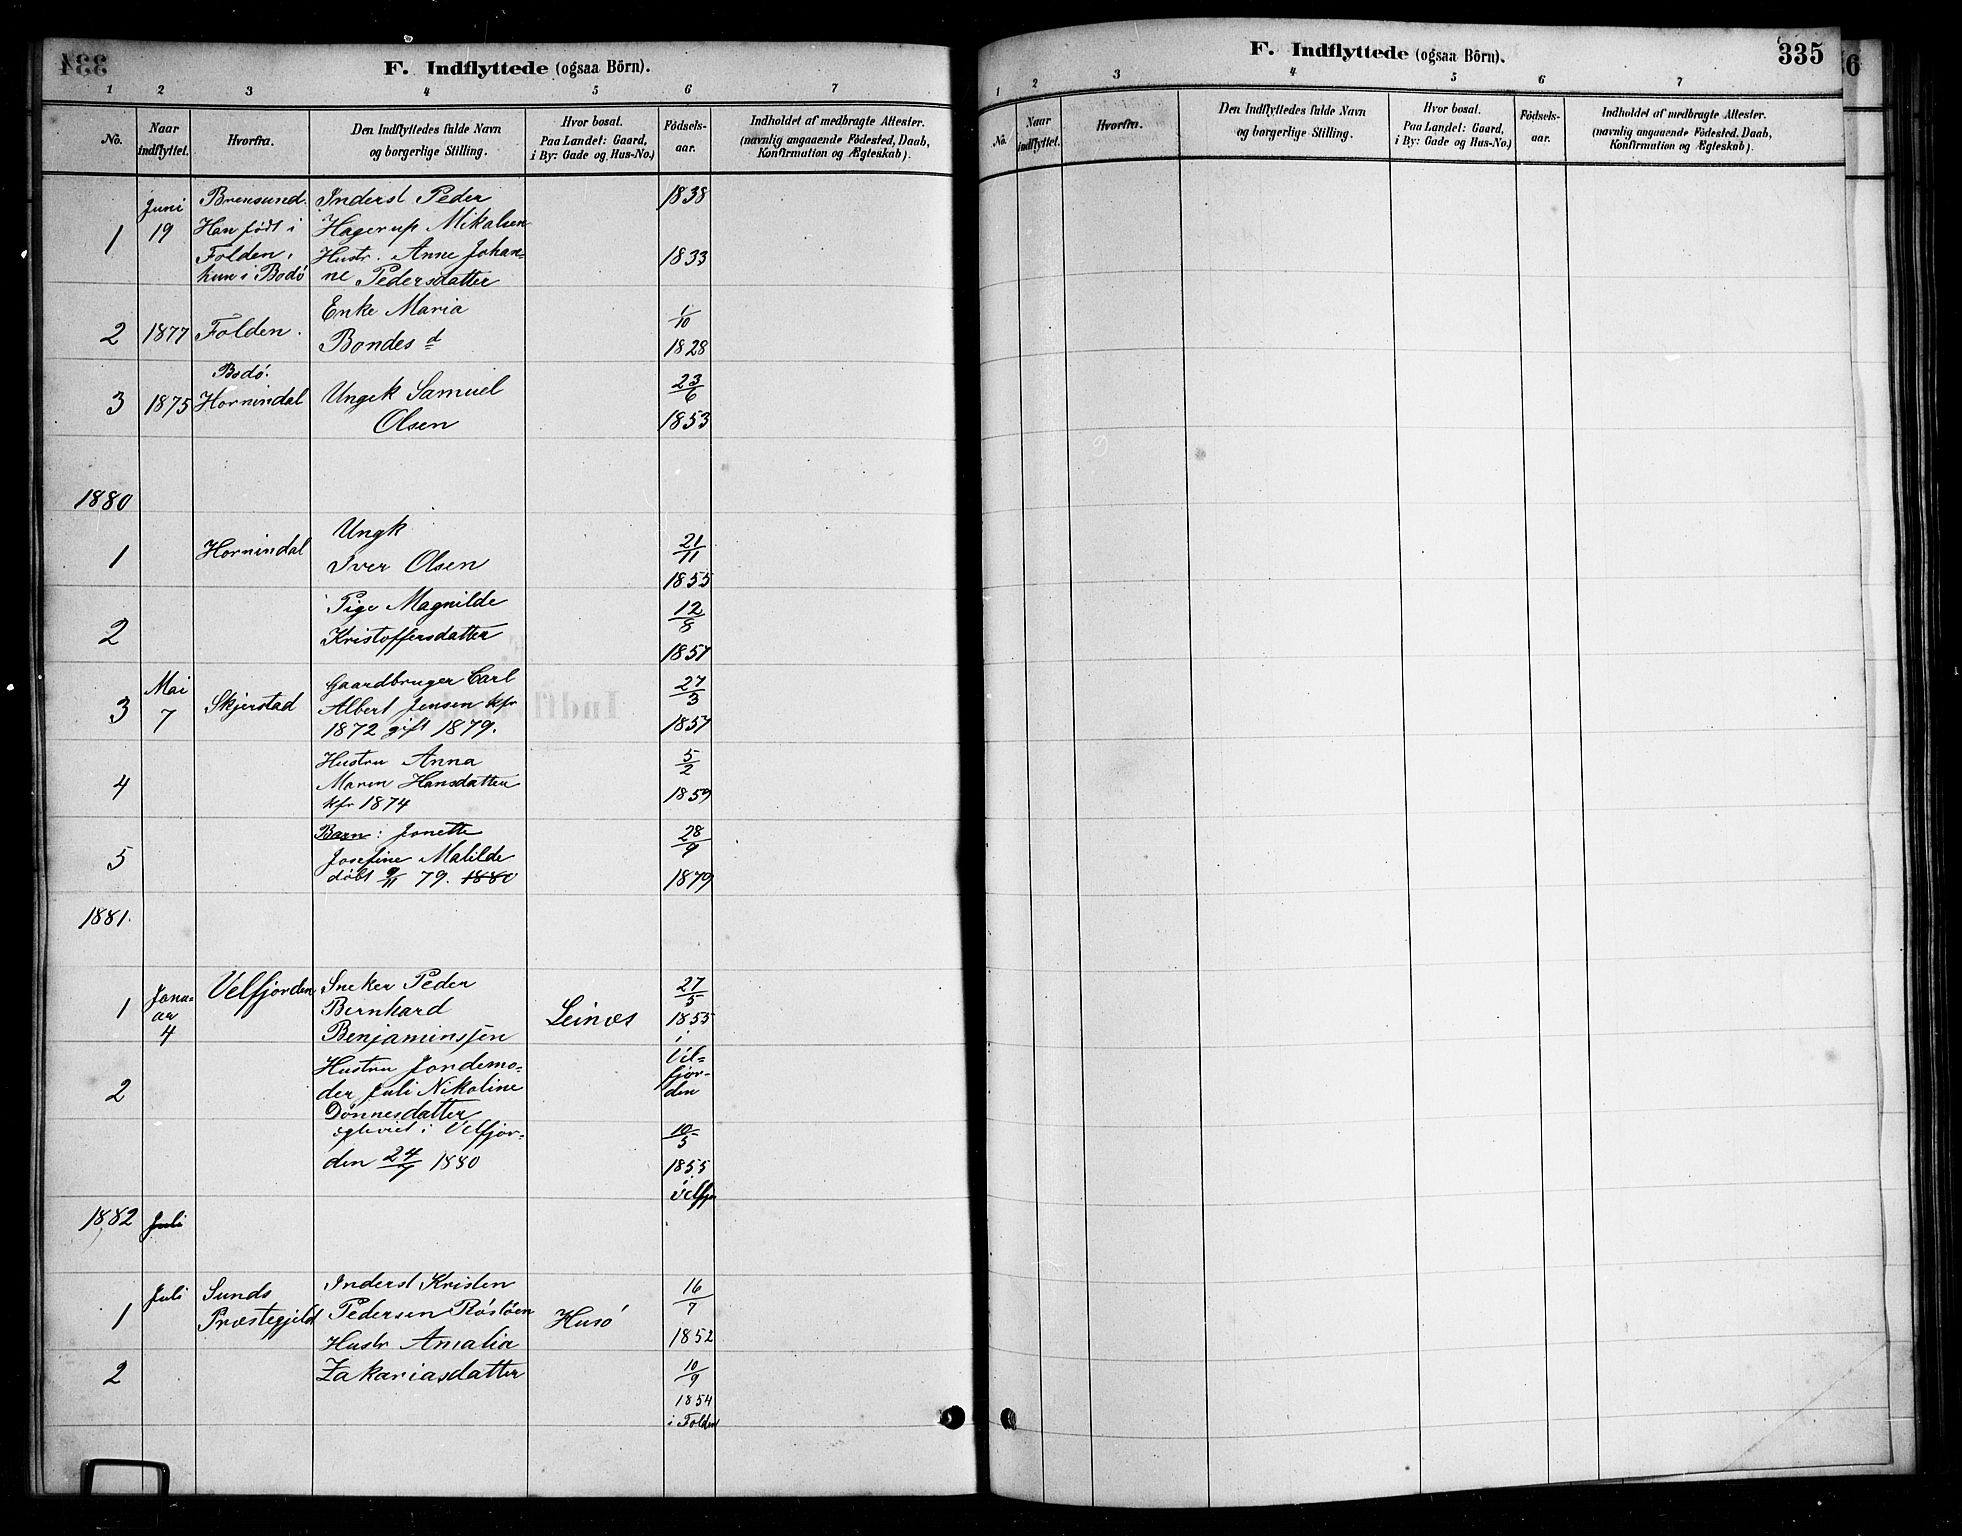 334
F. Indflyttede (ogsaa Börn).
1 2 3 4 5 6 7
No.
Naar
indflyttet.
Hvorfra.
Den Indflyttedes fulde Navn
og borgerlige Stilling.
Hvor bosat.
Paa Landet: Gaard,
i By: Gade og Hus-No.)
Födsels-
aar.
Indholdet af medbragte Attester.
(navnlig angaaende Födested, Daab,
Konfirmation og Ægteskab).
1
Juni
19
Brensund.
Han født i
Folden,
hun i Bodö
Inderst Peder
Hagerup Mikalsen
Hustr. Anne Johan=
ne Pedersdatter
1838
1833
2 1877 Folden.
Enke Maria
Bondes d
1/10
1828
3 1875
Bodö.
Hornindal
Ungk Samuel
Olsen
23/6
1853
1880
1
Hornindal
Ungk
Iver Olsen
21/11
1855
2
Pige Magnilde
Kristoffersdatter
12/8
1857
3
Mai
7
Skjerstad
Gaardbruger Carl
Albert Jensen kfr
1872 gift 1879.
27/3
1857
4
Hustru Anna
Maren Hansdatter
kfr 1874
5/2
1859
5
Barn: Jonette
Josefine Matilde
döbt 9/11 79. 1880
28/9
1879
1881.
1
Janu=
ar
4
Velfjorden
Sneker Peder
Bernhard
Benjaminsen
Leines
27/5
1855
i
Vel=
fjor=
den
2
Hustru Jordemo=
der Juli Nikoline
Dönnesdatter
egteviet i Velfjor=
den 24/9 1880
10/5
1855
i Velfjor
1882 Juli
1
Juli
Sunds
Præstegjeld
Inderst Kristen
Pedersen Röstöen
Husö
16/7
1852
2
Hustr Amalia
Zakariasdatter
10/9
1854
i Folden
335
F. Indflyttede (ogsaa Börn).
1 2 3 4 5 6 7
No.
Naar
indflyttet.
Hvorfra.
Den Indflyttedes fulde Navn
og borgerlige Stilling.
Hvor bosat.
Paa Landet: Gaard,
i By: Gade og Hus-No.)
Födsels-
aar.
Indholdet af medbragte Attester.
(navnlig angaaende Födested, Daab,
Konfirmation og Ægteskab).